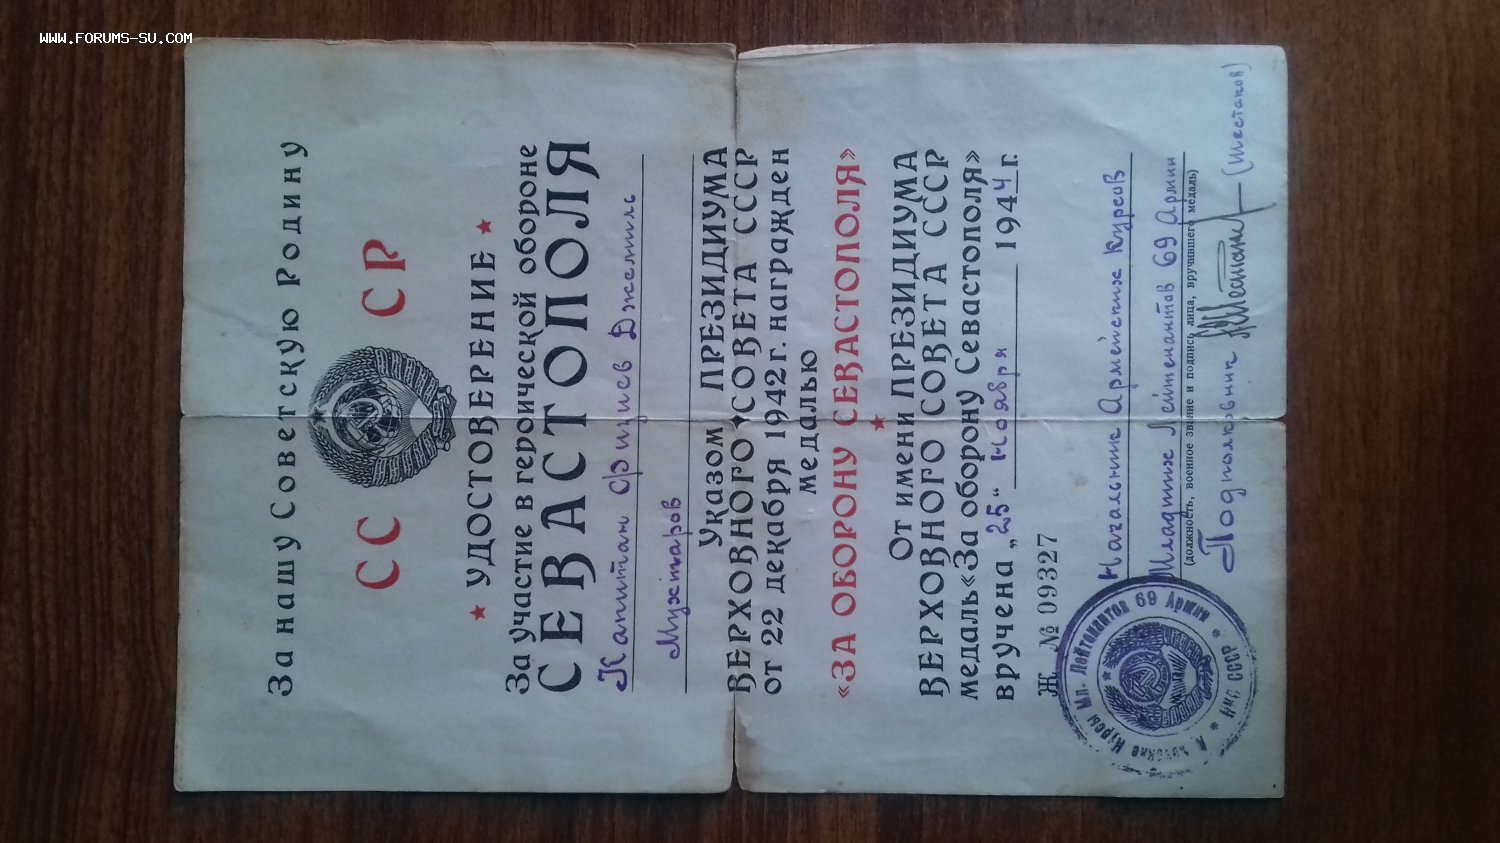 WWW.FORUMS-SU.COM
За нашу Советскую Родину
СС СР
★ УДОСТОВЕРЕНИЕ ★
За участие в героической обороне
СЕВАСТОПОЛЯ
Капитан Джемиль
Мухтаров
Указом ПРЕЗИДИУМА
ВЕРХОВНОГО СОВЕТА СССР
от 22 декабря 1942 г. награжден
медалью
«ЗА ОБОРОНУ СЕВАСТОПОЛЯ»
★
От имени ПРЕЗИДИУМА
ВЕРХОВНОГО СОВЕТА СССР
медаль «За оборону Севастополя»
вручена „25“ Ноября 1944 г.
Ж № 09327
Начальник Армейских Курсов
Младших Лейтенантов 69 Армии
(должность, военное звание и подпись лица, вручившего медаль)
Подполковник (Шестаков)
Курсы Мл. Лейтенантов 69 Армии
★ НКО СССР ★